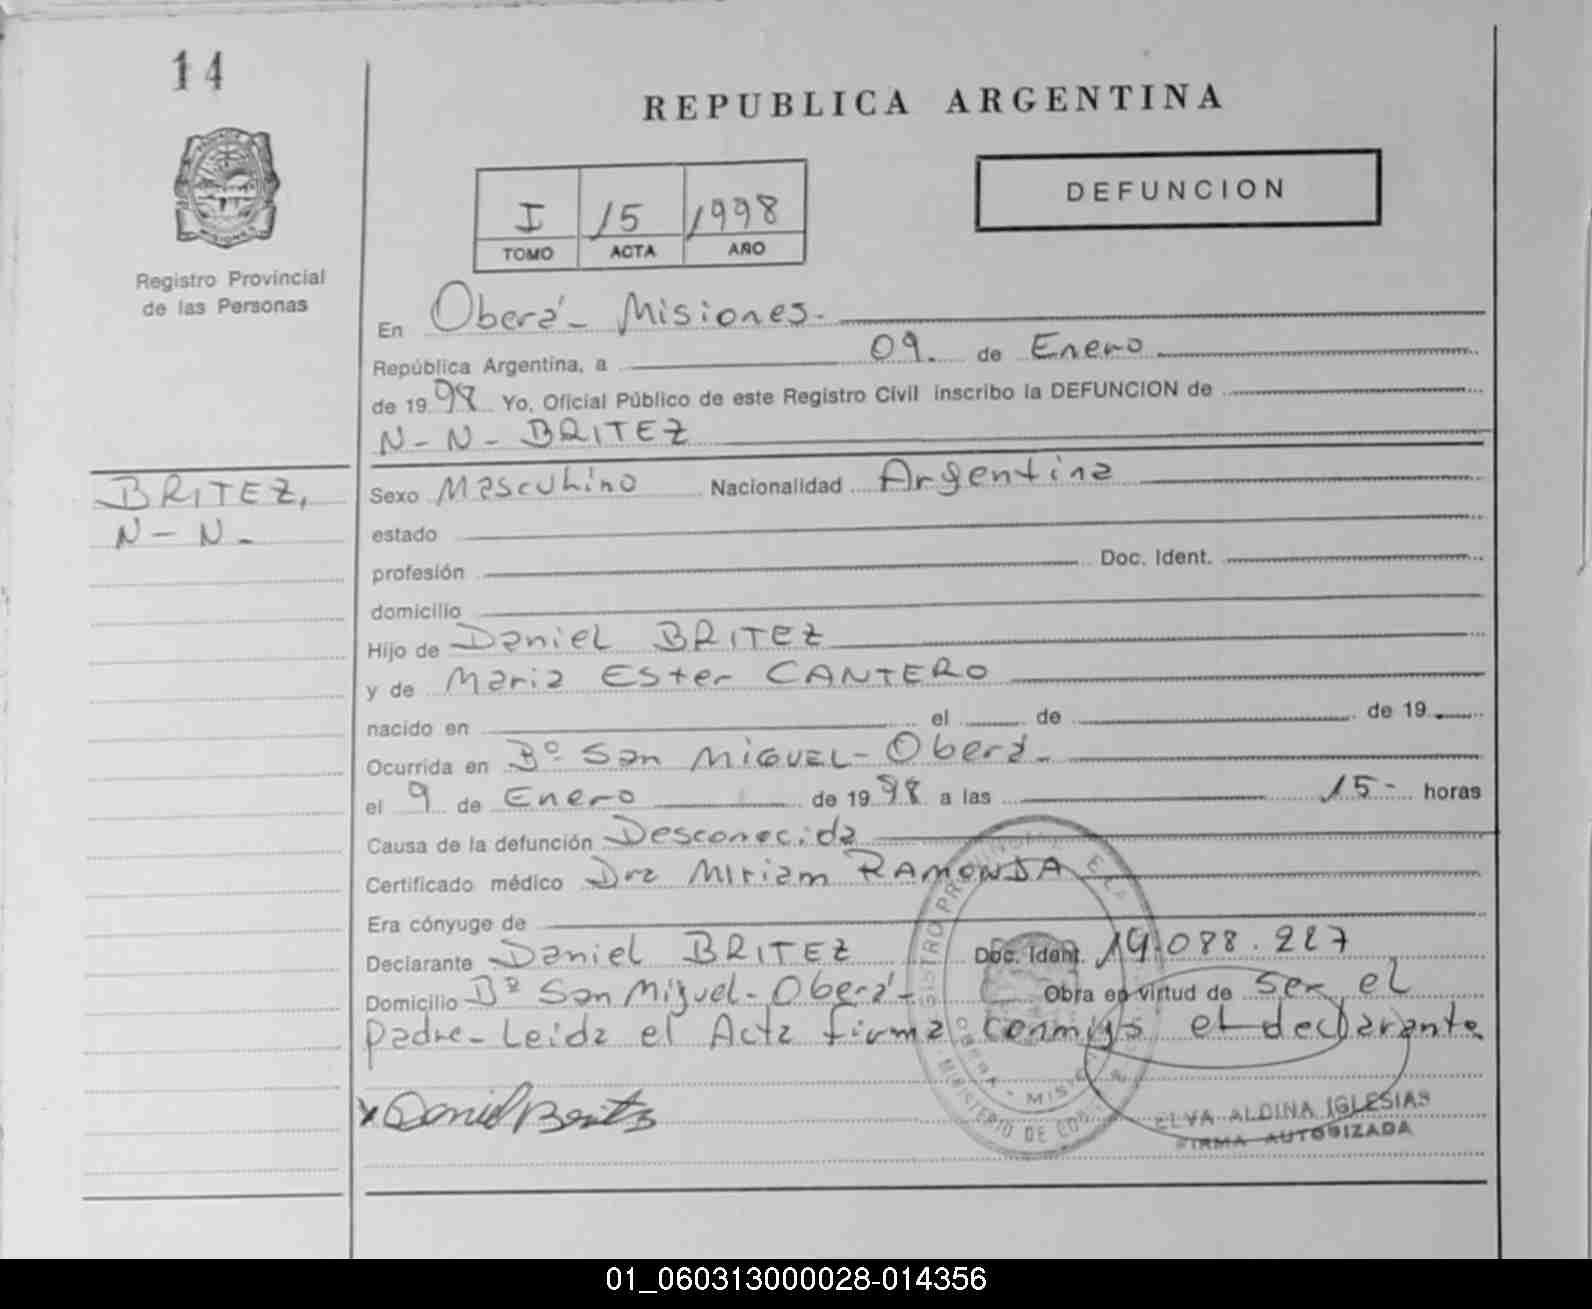 14
REPUBLICA ARGENTINA
DEFUNCION
I 15 1998
TOMO ACTA AÑO
MISIONES
Registro Provincial
de las Personas
En Oberá - Misiones.
República Argentina, a 09. de Enero
de 1998 Yo, Oficial Público de este Registro Civil inscribo la DEFUNCION de
N-N- BRITEZ
BRITEZ,
N-N-
Sexo Masculino Nacionalidad Argentina
estado
profesión Doc. Ident.
domicilio
Hijo de Daniel BRITEZ
y de Maria Ester CANTERO
nacido en el de de 19
Ocurrida en Bº San MIGUEL - Oberá -
el 9 de Enero de 1998 a las 15- horas
Causa de la defunción Desconocida
Certificado médico Dra Miriam RAMONDA
Era cónyuge de
Declarante Daniel BRITEZ Doc. Ident. 19.088.227
Domicilio Bº San Miguel - Oberá - Obra en virtud de ser el
padre - Leida el Acta firma conmigo el declarante
x Daniel Britez
ELVA ALDINA IGLESIAS
FIRMA AUTORIZADA
01_060313000028-014356